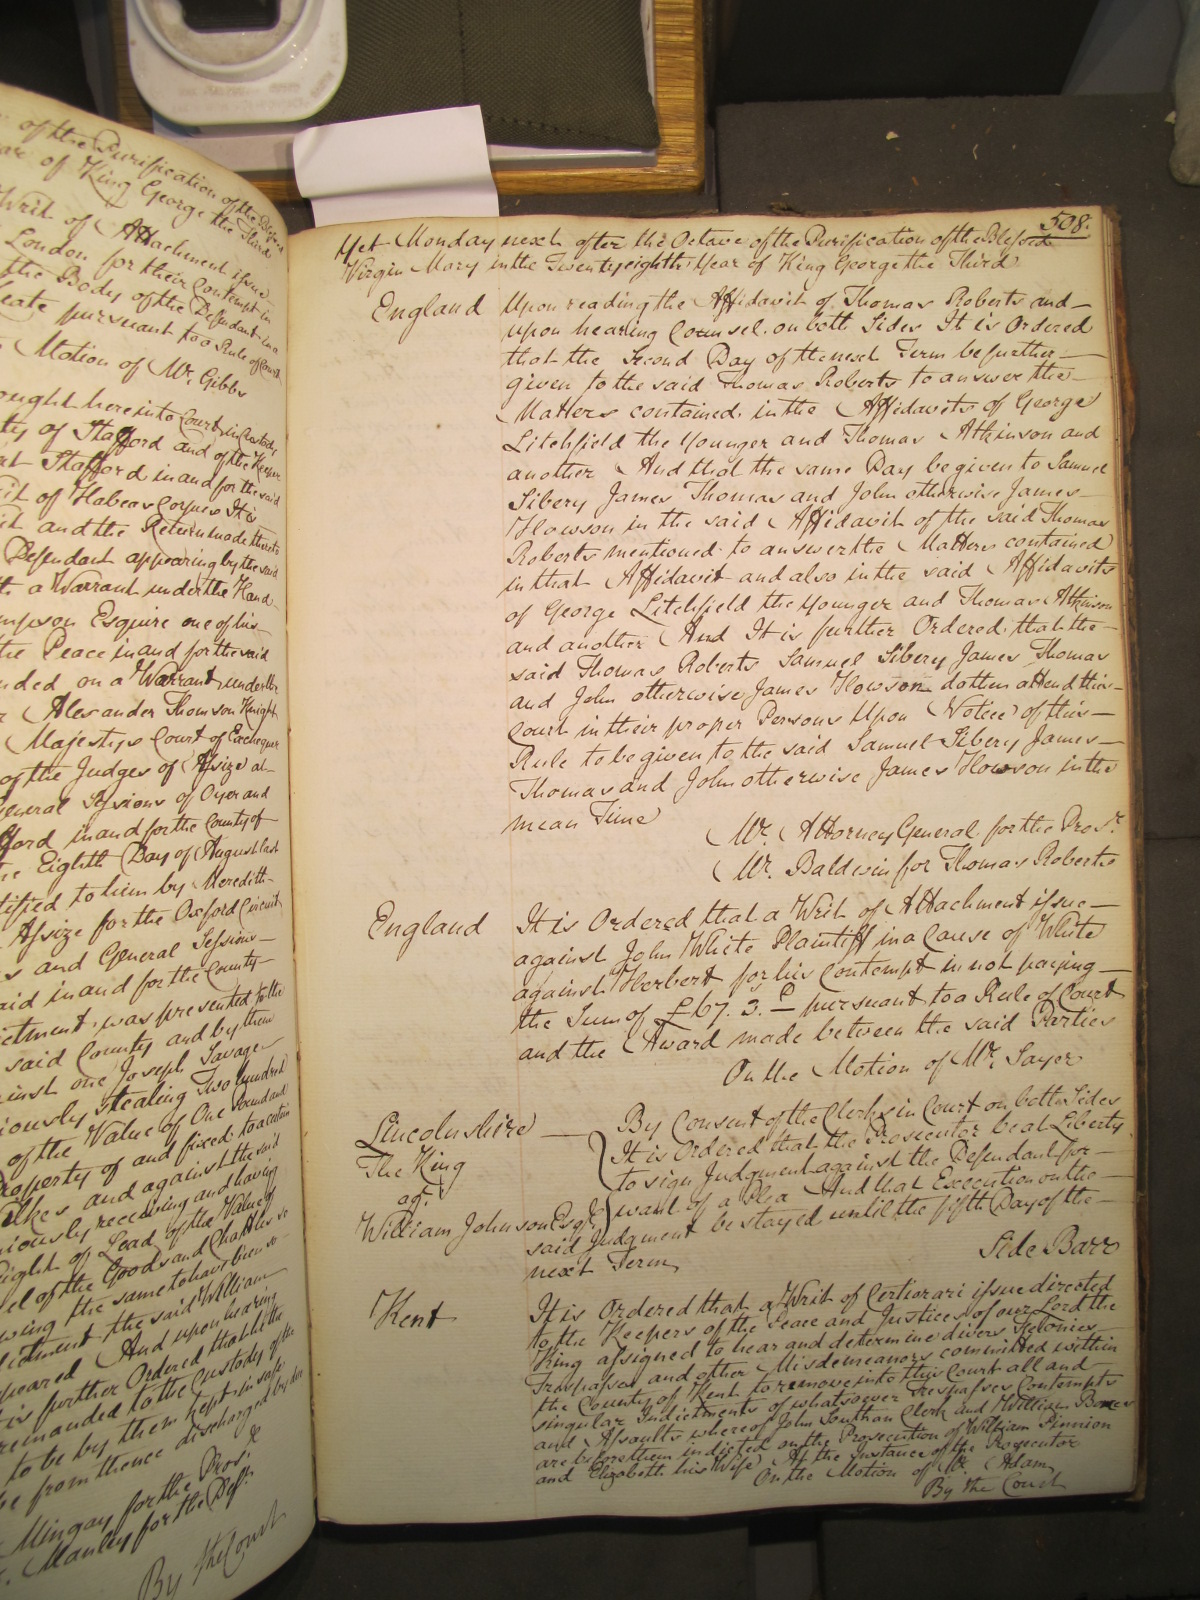 of the Purification of the Blessed
of King George the Third
Writ of Attachment issue
London for their Contempt in
the Body of the Defendant in a
pursuant to a Rule of Court
Motion of Mr. Gibbs
ought here into Court in Custody
ty of Stafford and of the Keeper
at Stafford in and for the said
it of Habeas Corpus It is
and the Return made thereto
Defendant appearing by the said
a Warrant under the Hand
mpson Esquire one of his
the Peace in and for the said
nded on a Warrant under the
Alexander Thomson Knight
Majestys Court of Exchequer
of the Judges of Assize at
General Sessions of Oyer and
fford in and for the County of
Eighth Day of August last
tified to him by Meredith
Assize for the Oxford Circuit
s and General Sessions
aid in and for the County
ictment was presented to the
said County and by them
inst one Joseph Savage
iously stealing Two hundred
of the Value of One Pound and
Property of and fixed to a certain
ilkes and against the said
niously receiving and having
eight of Lead of the Value of
el of the Goods and Chattles so
wing the same to have been so
ictment the said William
peared And upon hearing
is further Ordered that he the
remanded to the Custody of the
to be by them kept in safe
be from thence discharged by due
&c
Mingay for the Pros.r
Manley for the Def.t
By the Court
508.
Yet Monday next after the Octave of the Purification of the Blessed
Virgin Mary in the Twenty eighth Year of King George the Third
England Upon reading the Affidavit of Thomas Roberts and
upon hearing Counsel on both Sides It is Ordered
that the Second Day of the next Term be further
given to the said Thomas Roberts to answer the
Matters contained in the Affidavits of George
Litchfield the Younger and Thomas Atkinson and
another And that the same Day be given to Samuel
Sibery James Thomas and John otherwise James
Howson in the said Affidavit of the said Thomas
Roberts mentioned to answer the Matters contained
in that Affidavit and also in the said Affidavits
of George Litchfield the Younger and Thomas Atkinson
and another And It is further Ordered that the
said Thomas Roberts Samuel Sibery James Thomas
and John otherwise James Howson do then attend this
Court in their proper Persons Upon Notice of this
Rule to be given to the said Samuel Sibery James
Thomas and John otherwise James Howson in the
mean Time
Mr. Attorney General for the Pros.r
Mr. Baldwin for Thomas Roberts
England It is Ordered that a Writ of Attachment issue
against John White Plaintiff in a Cause of White
against Herbert for his Contempt in not paying
the Sum of £167. 3. – pursuant to a Rule of Court
and the Award made between the said Parties
On the Motion of Mr. Sayer
Lincolnshire — By Consent of the Clerks in Court on both Sides
The King It is Ordered that the Prosecutor be at Liberty
ag.t to sign Judgment against the Defendant for
William Johnson Esq.r want of a Plea And that Execution on the
said Judgment be stayed until the fifth Day of the
next Term
Side Barr
Kent It is Ordered that a Writ of Certiorari issue directed
to the Keepers of the Peace and Justices of our Lord the
King assigned to hear and determine divers Felonies
Trespasses and other Misdemeanors committed within
the County of Kent to remove into this Court all and
singular Indictments of whatsoever Trespasses Contempts
and Assaults whereof John Southan Clerk and William
are before them indicted on the Prosecution of William Pinnion
and Elizabeth his Wife At the Instance of the Prosecutor
On the Motion of Mr. Adam
By the Court